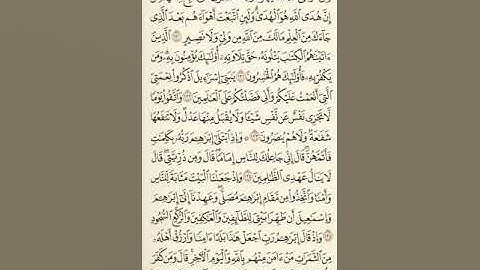 إِنَّ هُدَى ٱللَّهِ هُوَ ٱلْهُدَىٰ وَلَئِنِ ٱتَّبَعْتَ أَهْوَآءَهُم بَعْدَ ٱلَّذِى
جَآءَكَ مِنَ ٱلْعِلْمِ مَا لَكَ مِنَ ٱللَّهِ مِن وَلِىٍّ وَلَا نَصِيرٍ ١٢٠ ٱلَّذِينَ
ءَاتَيْنَٰهُمُ ٱلْكِتَٰبَ يَتْلُونَهُۥ حَقَّ تِلَاوَتِهِۦٓ أُو۟لَٰٓئِكَ يُؤْمِنُونَ بِهِۦ وَمَن
يَكْفُرْ بِهِۦ فَأُو۟لَٰٓئِكَ هُمُ ٱلْخَٰسِرُونَ ١٢١ يَٰبَنِىٓ إِسْرَٰٓءِيلَ ٱذْكُرُوا۟ نِعْمَتِىَ
ٱلَّتِىٓ أَنْعَمْتُ عَلَيْكُمْ وَأَنِّى فَضَّلْتُكُمْ عَلَى ٱلْعَٰلَمِينَ ١٢٢ وَٱتَّقُوا۟ يَوْمًا
لَّا تَجْزِى نَفْسٌ عَن نَّفْسٍ شَيْـًٔا وَلَا يُقْبَلُ مِنْهَا عَدْلٌ وَلَا تَنفَعُهَا
شَفَٰعَةٌ وَلَا هُمْ يُنصَرُونَ ١٢٣ ۞ وَإِذِ ٱبْتَلَىٰٓ إِبْرَٰهِـۧمَ رَبُّهُۥ بِكَلِمَٰتٍ
فَأَتَمَّهُنَّ قَالَ إِنِّى جَاعِلُكَ لِلنَّاسِ إِمَامًا قَالَ وَمِن ذُرِّيَّتِى قَالَ
لَا يَنَالُ عَهْدِى ٱلظَّٰلِمِينَ ١٢٤ وَإِذْ جَعَلْنَا ٱلْبَيْتَ مَثَابَةً لِّلنَّاسِ
وَأَمْنًا وَٱتَّخِذُوا۟ مِن مَّقَامِ إِبْرَٰهِـۧمَ مُصَلًّى وَعَهِدْنَآ إِلَىٰٓ إِبْرَٰهِـۧمَ
وَإِسْمَٰعِيلَ أَن طَهِّرَا بَيْتِىَ لِلطَّآئِفِينَ وَٱلْعَٰكِفِينَ وَٱلرُّكَّعِ ٱلسُّجُودِ
١٢٥ وَإِذْ قَالَ إِبْرَٰهِـۧمُ رَبِّ ٱجْعَلْ هَٰذَا بَلَدًا ءَامِنًا وَٱرْزُقْ أَهْلَهُۥ
مِنَ ٱلثَّمَرَٰتِ مَنْ ءَامَنَ مِنْهُم بِٱللَّهِ وَٱلْيَوْمِ ٱلْءَاخِرِ قَالَ وَمَن كَفَرَ